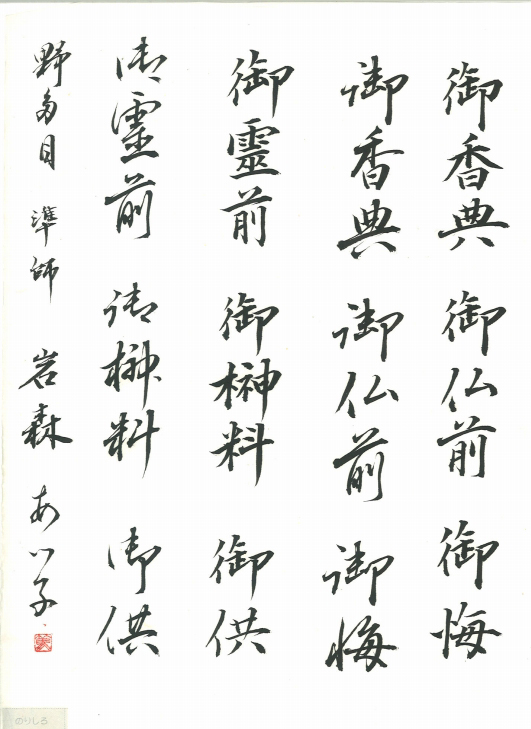 御香典 御仏前 御悔
御香典 御仏前 御悔
御靈前 御榊料 御供
御霊前 御榊料 御供
野多目 準師 岩森 あい子
のりしろ